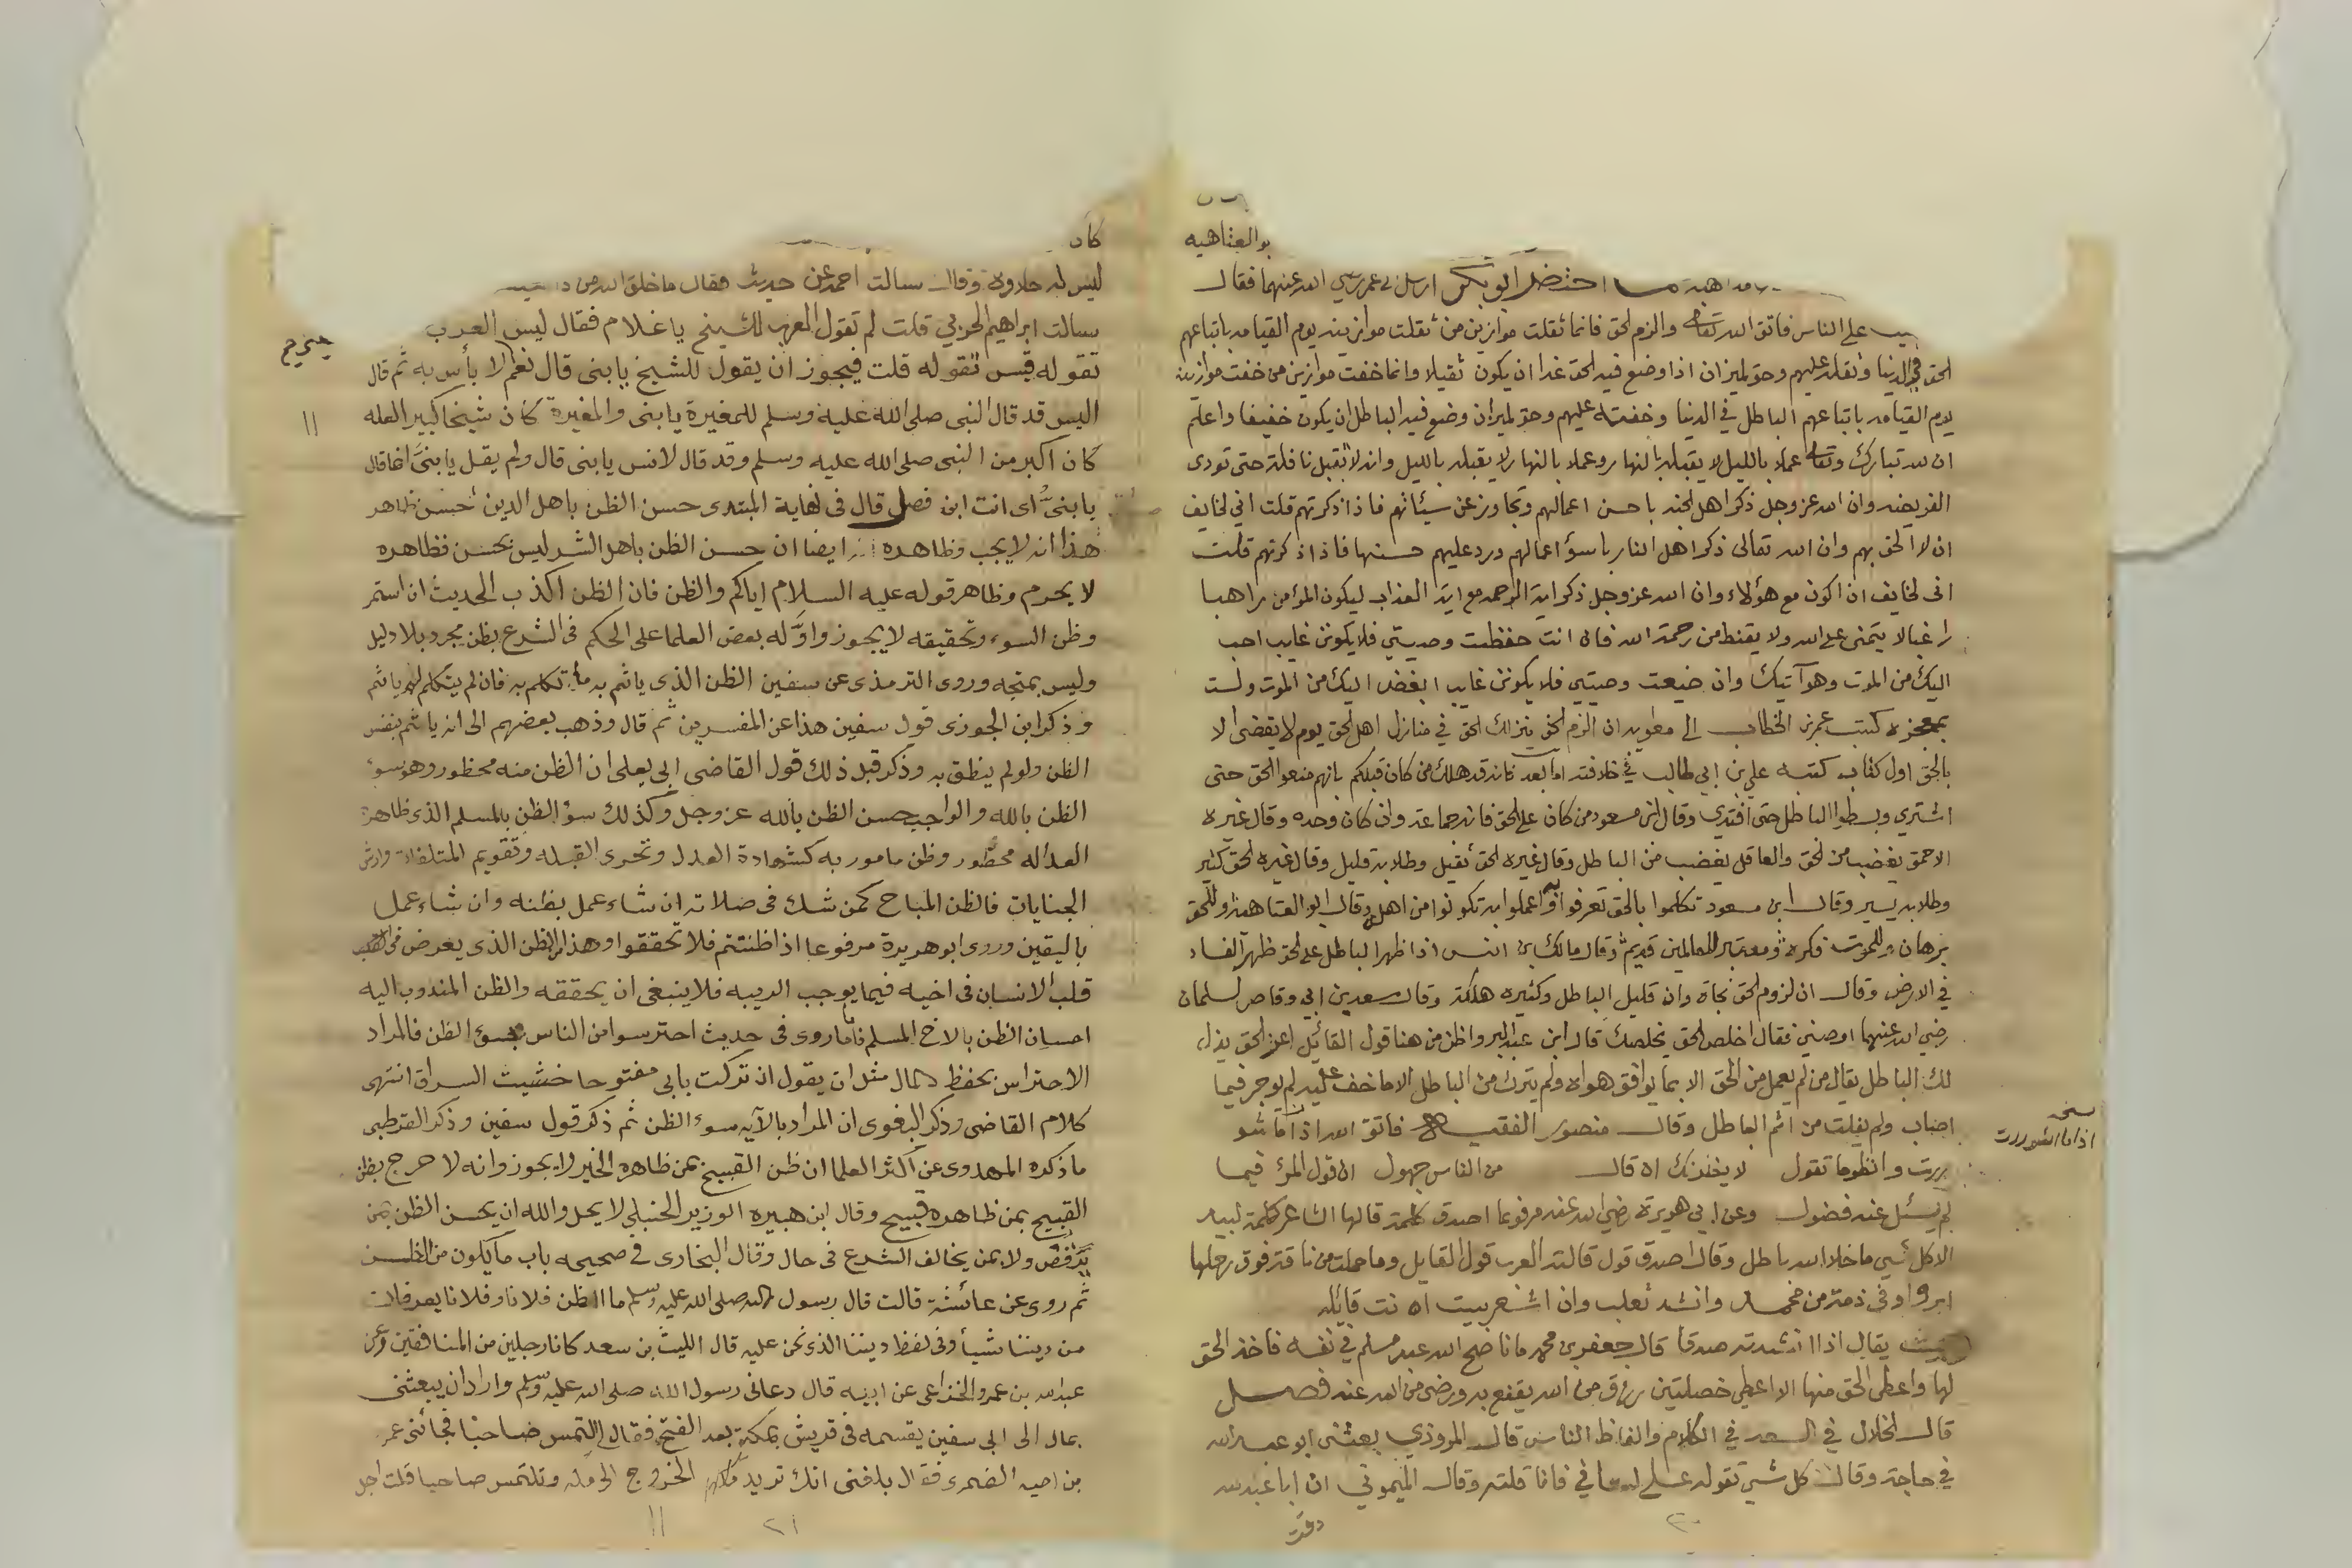 بو العتاهيه
احتضر ابو بكر ارسل الى عمر رضي الله عنهما فقال
على الناس فاتق الله تعالى والزم الحق فانما ثقلت موازين من ثقلت موازينه يوم القيامه باتباعهم
الحق في الدنيا وثقله عليهم وحق لميزان اذا وضع فيه الحق غدا ان يكون ثقيلا وانما خفت موازين من خفت موازينه
يوم القيامه باتباعهم الباطل في الدنيا وخفته عليهم وحق لميزان وضع فيه الباطل ان يكون خفيفا واعلم
ان لله تبارك وتعالى عملا بالليل لا يقبله بالنهار وعملا بالنهار لا يقبله بالليل وانه لا تقبل نافلة حتى تودى
الفريضه وان الله عز وجل ذكر اهل الجنه باحسن اعمالهم وتجاوز عن سيئاتهم فاذا ذكرتهم قلت اني لخايف
ان لا الحق بهم وان الله تعالى ذكر اهل النار باسؤ اعمالهم ورد عليهم حسنها فاذا ذكرتهم قلت
اني لخايف ان اكون مع هؤلاء وان الله عز وجل ذكر اية الرحمه مع اية العذاب ليكون المؤمن راهبا
راغبا لا يتمنى على الله ولا يقنط من رحمة الله فان انت حفظت وصيتي فلا يكونن غايب احب
اليك من الموت وهو آتيك وان ضيعت وصيتي فلا يكونن غايب ابغض اليك من الموت ولست
بمعجزه كتب عمر بن الخطاب الى معويه ان الزم الحق ينزلك الحق في منازل اهل الحق يوم لا يقضى الا
بالحق اول كتاب كتبه علي بن ابي طالب في خلافته اما بعد فانه قد هلك من كان قبلكم بانهم منعوا الحق حتى
اشتري وبسطوا الباطل حتى افتدي وقال ابن مسعود من كان على الحق فانه جماعة وان كان وحده وقال غيره
الاحمق يغضب من الحق والعاقل يغضب من الباطل وقال غيره الحق ثقيل وطلابه قليل وقال غيره الحق كثير
وطلابه يسير وقال ابن مسعود تكلموا بالحق تعرفوا به واعملوا به تكونوا من اهله وقال ابو العتاهية وللحق
برهان وللموت فكرة ومعتبر للعالمين قديم وقال مالك بن انس اذا ظهر الباطل على الحق ظهر الفساد
في الارض وقال ان لزوم الحق نجاة وان قليل الباطل وكثيره هلكة وقال سعد بن ابي وقاص لسلمان
رضي الله عنهما اوصني فقال اخلص الحق يخلصك قال ابن عبد البر واظن من هنا قول القائل اعز الحق يذل
لك الباطل يقال من لم يعمل من الحق الا بما يوافق هواه ولم يترك من الباطل الا ما خف عليه لم يوجر فيما
اصاب ولم يفلت من اثم الباطل وقال منصور الفقيه فاتق الله اذا ما شو
نسخه
اذا ما استوررت
ررت وانظر ما تقول لا يغننك ان قال من الناس جهول ان قول المرؤ فيما
لم يسئل عنه فضول وعن ابي هريرة رضي الله عنه مرفوعا اصدق كلمة قالها الشاعر كلمة لبيد
الا كل شي ما خلا الله باطل وقال اصدق قول قالته العرب قول القايل وما حملت من ناقة فوق رحلها
ابر واوفى ذمة من محمد وانشد ثعلب وان اشعر بيت انت قائله
بيت يقال اذا انشدته صدقا قال جعفر بن محمد ما ناصح الله عبد مسلم في نفسه فاخذ الحق
لها واعطى الحق منها الا اعطي خصلتين رزق من الله يقنع به ورضى من الله عنه فصل
قال الخلال في في الكلام والفاظ الناس قال المروذي بعثني ابو عبد الله
في حاجة وقال كل شي تقوله على لساني فانا قلته وقال الميموني ان ابا عبد الله
٢٠
كان
ليس له حلاوة وقال سالت احمد عن حديث فقال ما خلق الله من
سالت ابراهيم الحربي قلت لم تقول العرب للشيخ يا غلام فقال ليس العرب
تقوله قيس تقوله قلت فيجوز ان يقول للشيخ يا بني قال نعم لا بأس به ثم قال
اليس قد قال النبي صلى الله عليه وسلم للمغيرة يا بني والمغيرة كان شيخا كبيرا لعله
كان اكبر من النبي صلى الله عليه وسلم وقد قال لانس يا بني قال ولم يقل يا بني انما قال
يا بني اى انت ابن فصل قال في نهاية المبتدى حسن الظن باهل الدين حسن ظاهر
هذا انه لا يجب وظاهره ايضا ان حسن الظن باهل الشر ليس بحسن فظاهره
لا يحرم وظاهر قوله عليه السلام اياكم والظن فان الظن اكذب الحديث ان استمر
وظن السوء وتحقيقه لا يجوز واوله بعض العلما على الحكم في الشرع بظن مجرد بلا دليل
وليس بمتجه وروى الترمذى عن سفين الظن الذى ياثم به ما تكلم به فان لم يتكلم لم ياثم
وذكر ابن الجوزى قول سفين هذا عن المفسرين ثم قال وذهب بعضهم الى انه ياثم بنفس
الظن ولو لم ينطق به وذكر قبل ذلك قول القاضى ابى يعلى ان الظن منه محظور وهو سوء
الظن بالله والواجب حسن الظن بالله عز وجل وكذلك سؤ الظن بالمسلم الذى ظاهره
العداله محظور وظن مامور به كشهادة العدل وتحرى القبله وتقويم المتلفات وارش
الجنايات فالظن المباح كمن شك فى صلاته ان شاء عمل بظنه وان شاء عمل
باليقين وروى ابو هريرة مرفوعا اذا ظننتم فلا تحققوا وهذا من الظن الذى يعرض فى
قلب الانسان فى اخيه فيما يوجب الريبه فلا ينبغى ان يحققه والظن المندوب اليه
احسان الظن بالاخ المسلم فاما ما روى فى حديث احترسوا من الناس بسوء الظن فالمراد
الاحتراس بحفظ المال مثل ان يقول ان تركت بابى مفتوحا خشيت السراق انتهى
كلام القاضى وذكر البغوى ان المراد بالآيه سوء الظن ثم ذكر قول سفين وذكر القرطبى
ما ذكره المهدوى عن اكثر العلما ان ظن القبيح بمن ظاهره الخير لا يجوز وانه لا حرج بظن
القبيح بمن ظاهره قبيح وقال ابن هبيره الوزير الحنبلي لا يحل والله ان يحسن الظن بمن
ترفض ولا بمن يخالف الشرع فى حال وقال البخارى فى صحيحه باب ما يكون من الظن
ثم روى عن عائشة قالت قال رسول الله صلى الله عليه وسلم ما اظن فلانا وفلانا يعرفان
من ديننا شيأ وفى لفظ ديننا الذى نحن عليه قال الليث بن سعد كانا رجلين من المنافقين وعن
عبد الله بن عمرو الخزاعى عن ابيه قال دعانى رسول الله صلى الله عليه وسلم واراد ان يبعثنى
بمال الى ابى سفين يقسمه فى قريش بمكة بعد الفتح فقال التمس صاحبا فجائنى عمرو
بن اميه الضمرى فقال بلغنى انك تريد الخروج الى مكه وتلتمس صاحبا قلت اجل
٢١